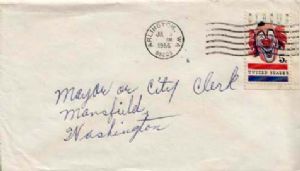 ARLINGTON, WA.
JUL
PM
1966
98223
5c
UNITED STATES
Mayor or City Clerk
Mansfield,
Washington